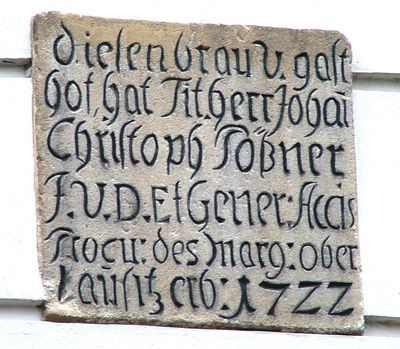 dieſen brau v. gaſt
hof, hat Tit. herr Johañ
Chriſtoph Pößner
J.V.D. Et Gener: Accis
Procu: des Marg: ober
Lauſitz erb: 1722